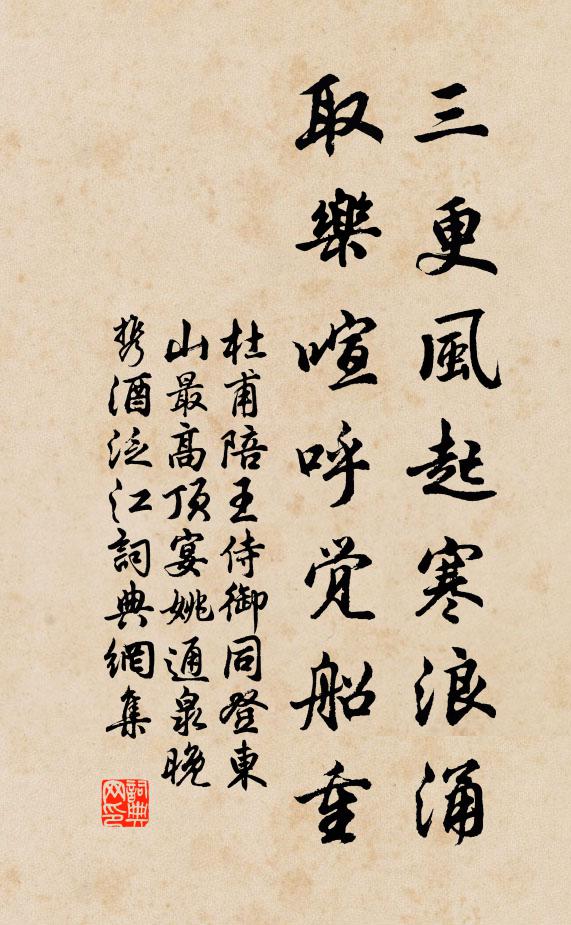 三更風起寒浪涌
取樂喧呼覚船重
杜甫陪王侍御同登東
山最高頂宴姚通泉晚
携酒泛江詞典網集
詞典网印